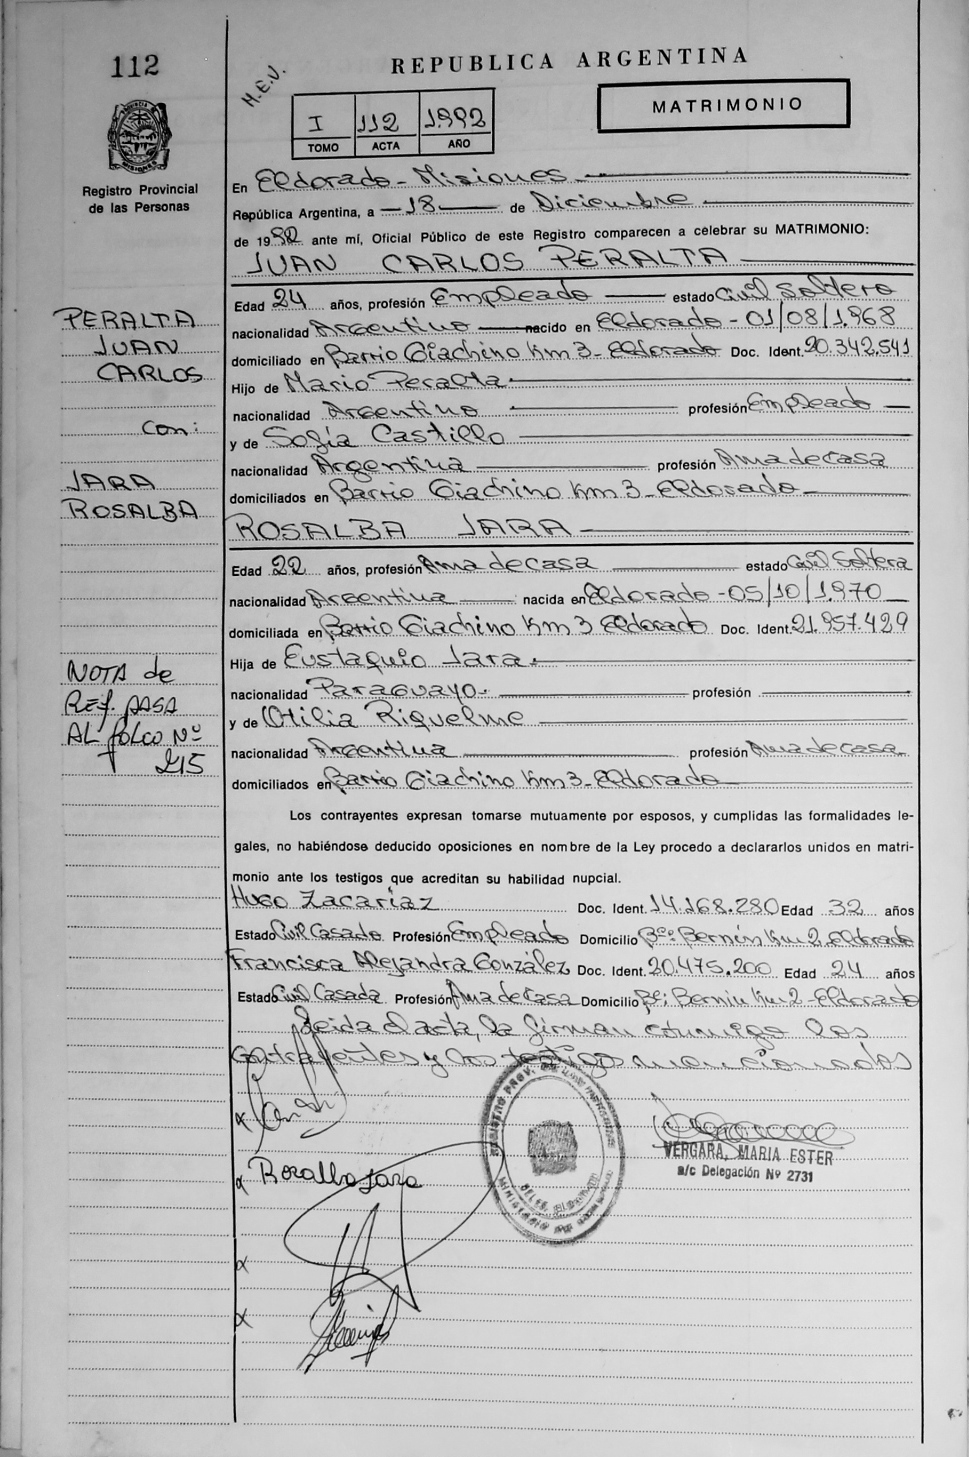 112
REPUBLICA ARGENTINA
M.E.J.
I 112 1992
TOMO ACTA AÑO
MATRIMONIO
Registro Provincial
de las Personas
En Eldorado - Misiones
República Argentina, a 18 de Diciembre
de 1992 ante mí, Oficial Público de este Registro comparecen a celebrar su MATRIMONIO:
JUAN CARLOS PERALTA
Edad 24 años, profesión Empleado estado Civil Soltero
nacionalidad Argentino nacido en Eldorado - 01/08/1.968
domiciliado en Barrio Giachino Km 3 - Eldorado Doc. Ident. 20.342.541
Hijo de Mario Peralta
nacionalidad Argentino profesión Empleado
y de Sofía Castillo
nacionalidad Argentina profesión Ama de Casa
domiciliados en Barrio Giachino Km 3 - Eldorado
ROSALBA JARA
Edad 22 años, profesión Ama de casa estado Civil Soltera
nacionalidad Argentina nacida en Eldorado - 05/10/1.970
domiciliada en Barrio Giachino Km 3 Eldorado Doc. Ident. 21.957.429
Hija de Eustaquio Jara
nacionalidad Paraguayo profesión
y de Otilia Riquelme
nacionalidad Argentina profesión Ama de casa
domiciliados en Barrio Giachino Km 3 - Eldorado
Los contrayentes expresan tomarse mutuamente por esposos, y cumplidas las formalidades le-
gales, no habiéndose deducido oposiciones en nombre de la Ley procedo a declararlos unidos en matri-
monio ante los testigos que acreditan su habilidad nupcial.
Hugo Zacariaz Doc. Ident. 14.168.280 Edad 32 años
Estado Civil Casado Profesión Empleado Domicilio Bº: Bernin Km 2 Eldorado
Francisca Alejandra González Doc. Ident. 20.475.200 Edad 24 años
Estado Civil Casada Profesión Ama de Casa Domicilio Bº: Bernin Km 2 - Eldorado
Leida el acta, la firman conmigo los
contrayentes y los testigo mencionados
Rosalba Jara
VERGARA, MARIA ESTER
a/c Delegación Nº 2731
REGISTRO PROV. DE LAS PERSONAS
PERALTA
JUAN
CARLOS
Con:
JARA
ROSALBA
NOTA de
Ref. PASA
AL folio Nº
215